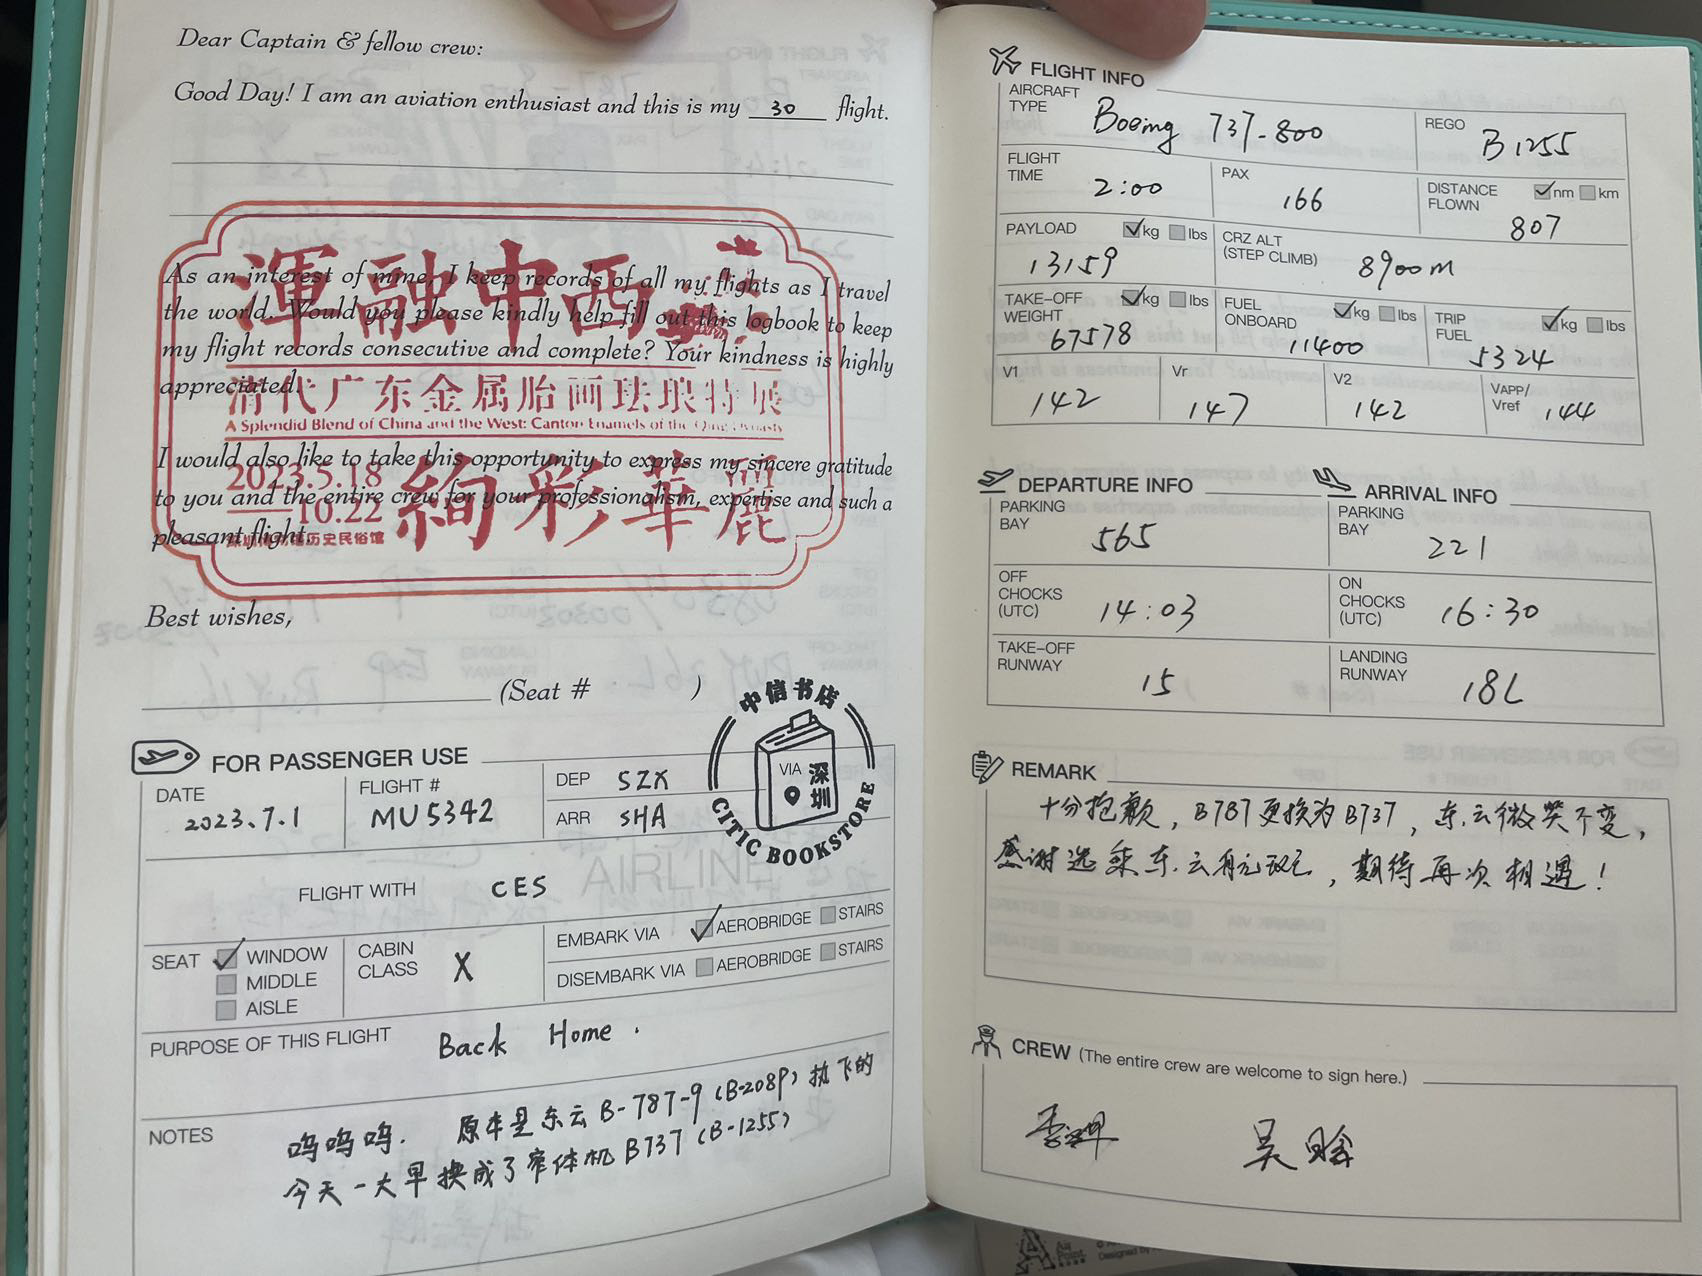 Dear Captain & fellow crew:
Good Day! I am an aviation enthusiast and this is my 30 flight.
渾融中西
As an interest of mine, I keep records of all my flights as I travel
the world. Would you please kindly help fill out this logbook to keep
my flight records consecutive and complete? Your kindness is highly
appreciated.
清代广东金属胎画珐琅特展
A Splendid Blend of China and the West: Canton Enamels of the Qing Dynasty
I would also like to take this opportunity to express my sincere gratitude
to you and the entire crew for your professionalism, expertise and such a
pleasant flight.
2023.5.18
10.22
絢彩華麗
深圳博物馆历史民俗馆
Best wishes,
(Seat # )
中信书店
VIA 深圳
CITIC BOOKSTORE
FOR PASSENGER USE
DATE 2023.7.1
FLIGHT # MU5342
DEP SZX
ARR SHA
FLIGHT WITH CES
AIRLINE
SEAT WINDOW
MIDDLE
AISLE
CABIN CLASS X
EMBARK VIA AEROBRIDGE STAIRS
DISEMBARK VIA AEROBRIDGE STAIRS
PURPOSE OF THIS FLIGHT Back Home.
NOTES
呜呜呜. 原本是东云B-787-9 (B-208P) 执飞的
今天一大早换成了窄体机B737 (B-1255)
FLIGHT INFO
AIRCRAFT TYPE Boeing 737-800
REGO B1255
FLIGHT TIME 2:00
PAX 166
DISTANCE FLOWN nm km 807
PAYLOAD kg lbs 13159
CRZ ALT (STEP CLIMB) 8900m
TAKE-OFF WEIGHT kg lbs 67578
FUEL ONBOARD kg lbs 11400
TRIP FUEL kg lbs 5324
V1 142
Vr 147
V2 142
VAPP/ Vref 144
DEPARTURE INFO
PARKING BAY 565
OFF CHOCKS (UTC) 14:03
TAKE-OFF RUNWAY 15
ARRIVAL INFO
PARKING BAY 221
ON CHOCKS (UTC) 16:30
LANDING RUNWAY 18L
REMARK
十分抱歉，B787更换为B737，东云微笑不变，
感谢选乘东云，期待再次相遇！
CREW (The entire crew are welcome to sign here.)
Air
Point
Designed by